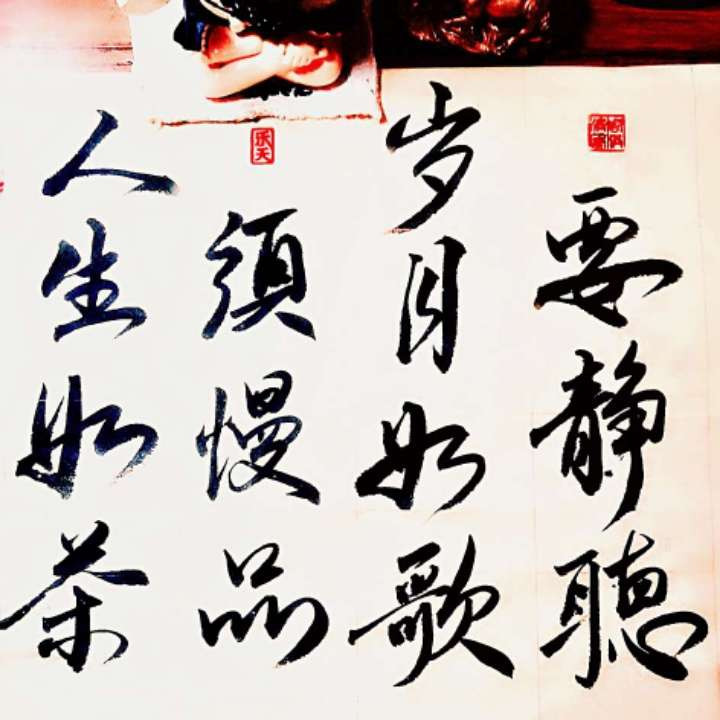 人生如茶
須慢品
岁月如歌
要静聴